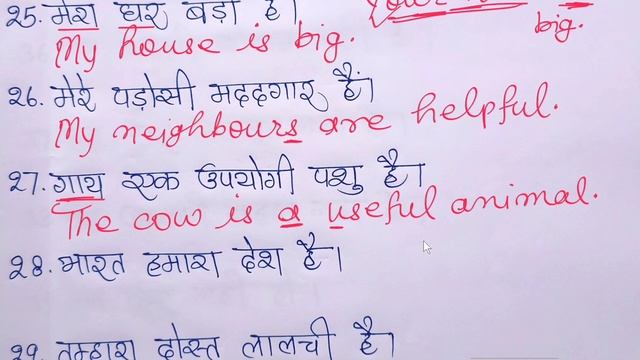 25. मेरा घर बड़ा है।
My house is big.
big.
26. मेरे पड़ोसी मददगार हैं।
My neighbours are helpful.
27. गाय एक उपयोगी पशु है।
The cow is a useful animal.
28. भारत हमारा देश है।
29. तुम्हारा दोस्त लालची है।